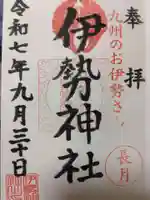 奉拝
九州のお伊勢さん
伊勢神社
長月
令和七年九月三十日